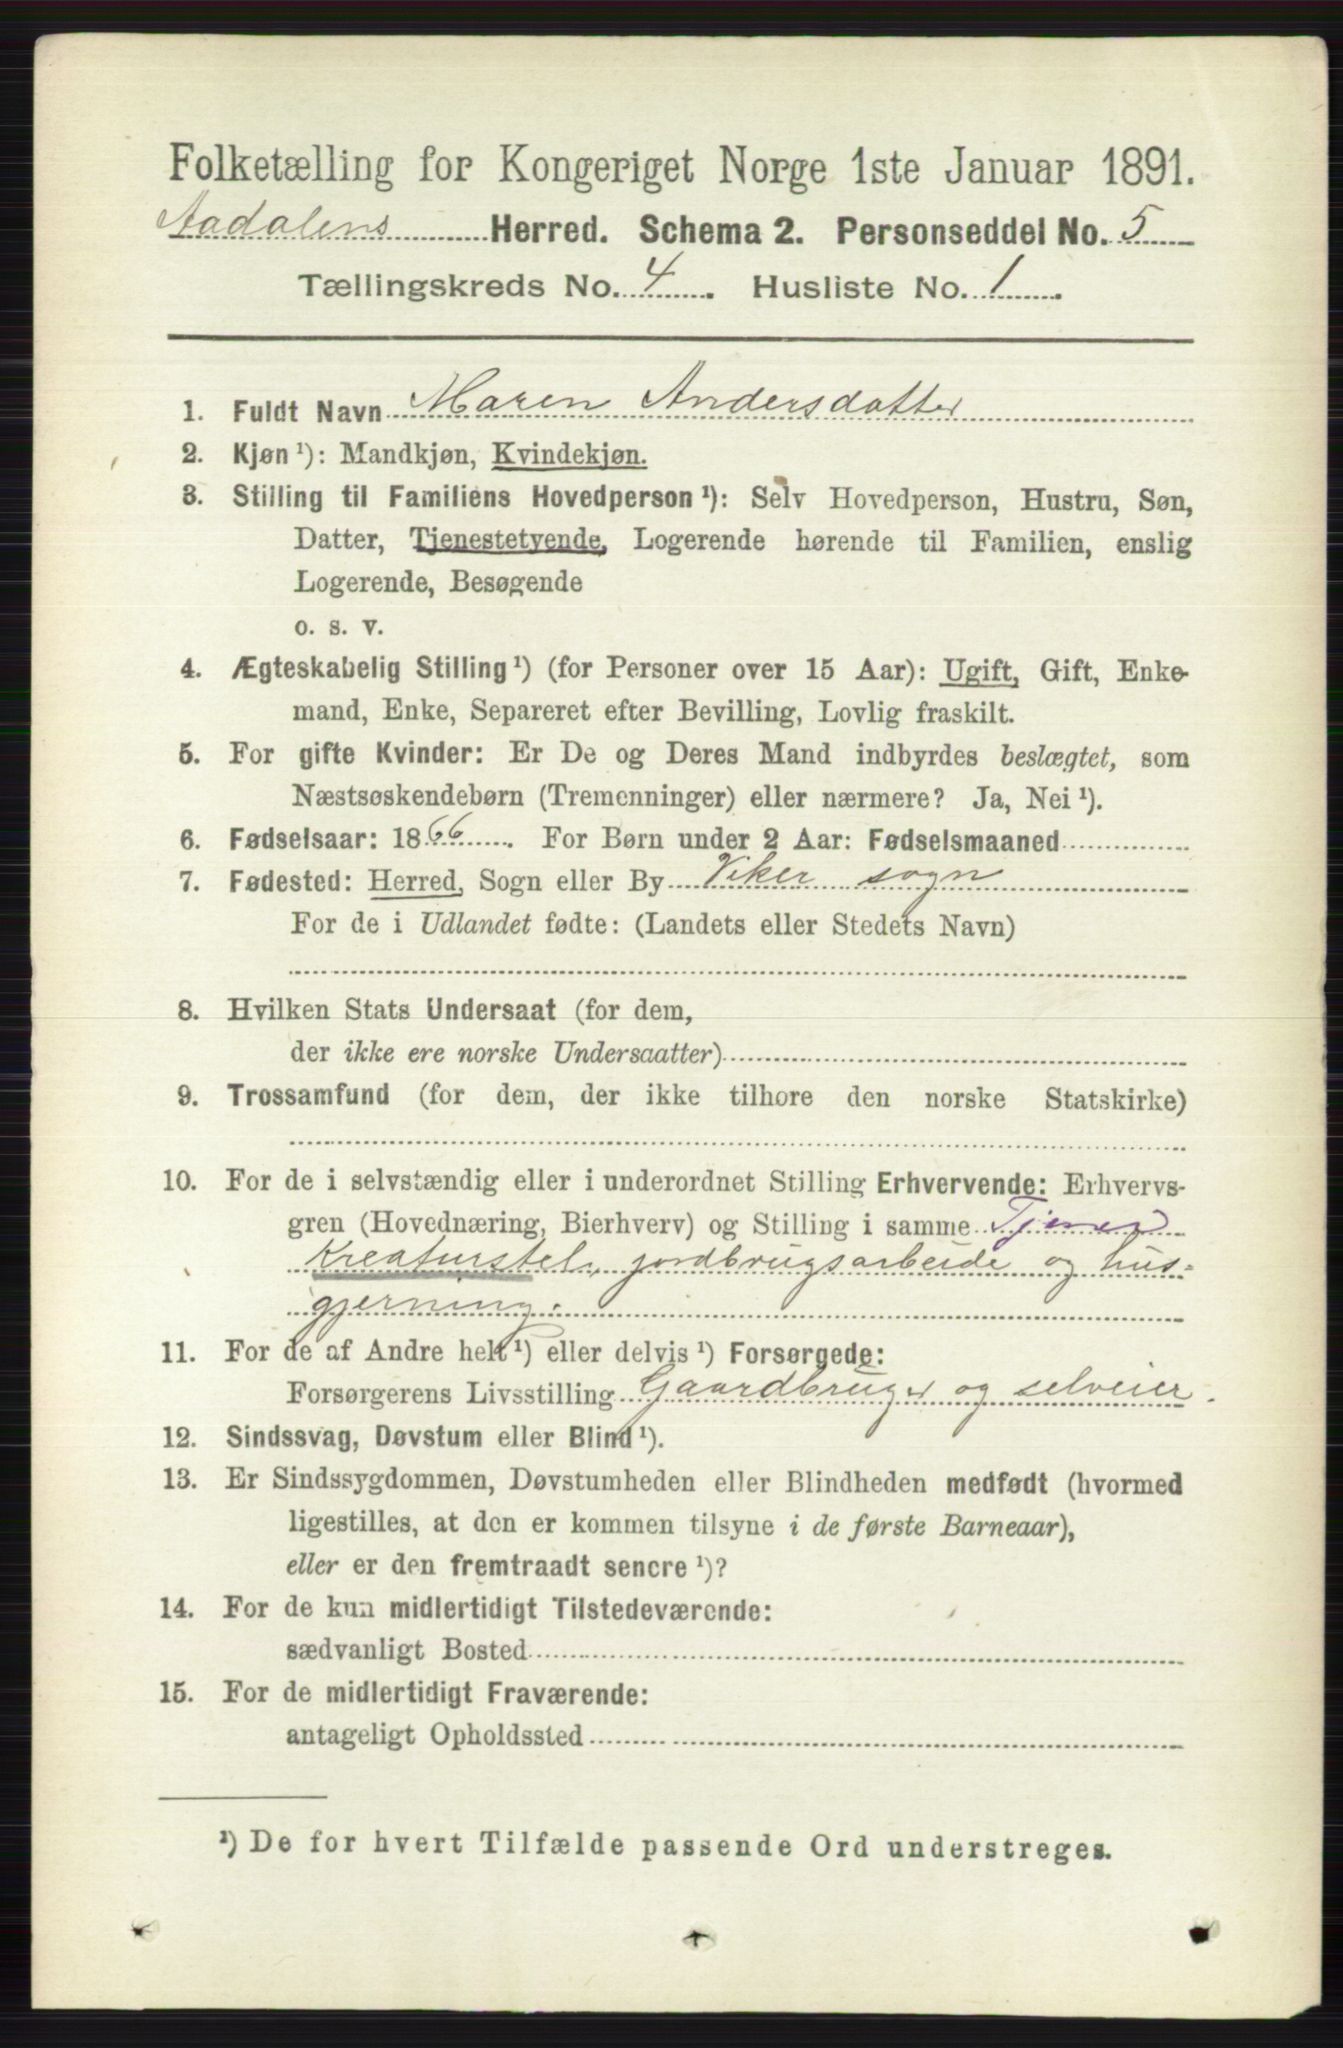 Folketælling for Kongeriget Norge 1ste Januar 1891.
Aadalens Herred. Schema 2. Personseddel No. 5
Tællingskreds No. 4. Husliste No. 1.
1. Fuldt Navn Maren Andersdatter
2. Kjøn ¹): Mandkjøn, Kvindekjøn.
3. Stilling til Familiens Hovedperson ¹): Selv Hovedperson, Hustru, Søn,
Datter, Tjenestetyende, Logerende hørende til Familien, enslig
Logerende, Besøgende
o. s. v.
4. Ægteskabelig Stilling ¹) (for Personer over 15 Aar): Ugift, Gift, Enke-
mand, Enke, Separeret efter Bevilling, Lovlig fraskilt.
5. For gifte Kvinder: Er De og Deres Mand indbyrdes beslægtet, som
Næstsøskendebørn (Tremenninger) eller nærmere? Ja, Nei ¹).
6. Fødselsaar: 1866. For Børn under 2 Aar: Fødselsmaaned
7. Fødested: Herred, Sogn eller By Viker sogn
For de i Udlandet fødte: (Landets eller Stedets Navn)
8. Hvilken Stats Undersaat (for dem,
der ikke ere norske Undersaatter)
9. Trossamfund (for dem, der ikke tilhøre den norske Statskirke)
10. For de i selvstændig eller i underordnet Stilling Erhvervende: Erhvervs-
gren (Hovednæring, Bierhverv) og Stilling i samme Tjener
Kreaturstel, jordbrugsarbeide og hus-
gjerning.
11. For de af Andre helt ¹) eller delvis ¹) Forsørgede:
Forsørgerens Livsstilling Gaardbruger og selveier.
12. Sindssvag, Døvstum eller Blind ¹).
13. Er Sindssygdommen, Døvstumheden eller Blindheden medfødt (hvormed
ligestilles, at den er kommen tilsyne i de første Barneaar),
eller er den fremtraadt senere ¹)?
14. For de kun midlertidigt Tilstedeværende:
sædvanligt Bosted
15. For de midlertidigt Fraværende:
antageligt Opholdssted
¹) De for hvert Tilfælde passende Ord understreges.